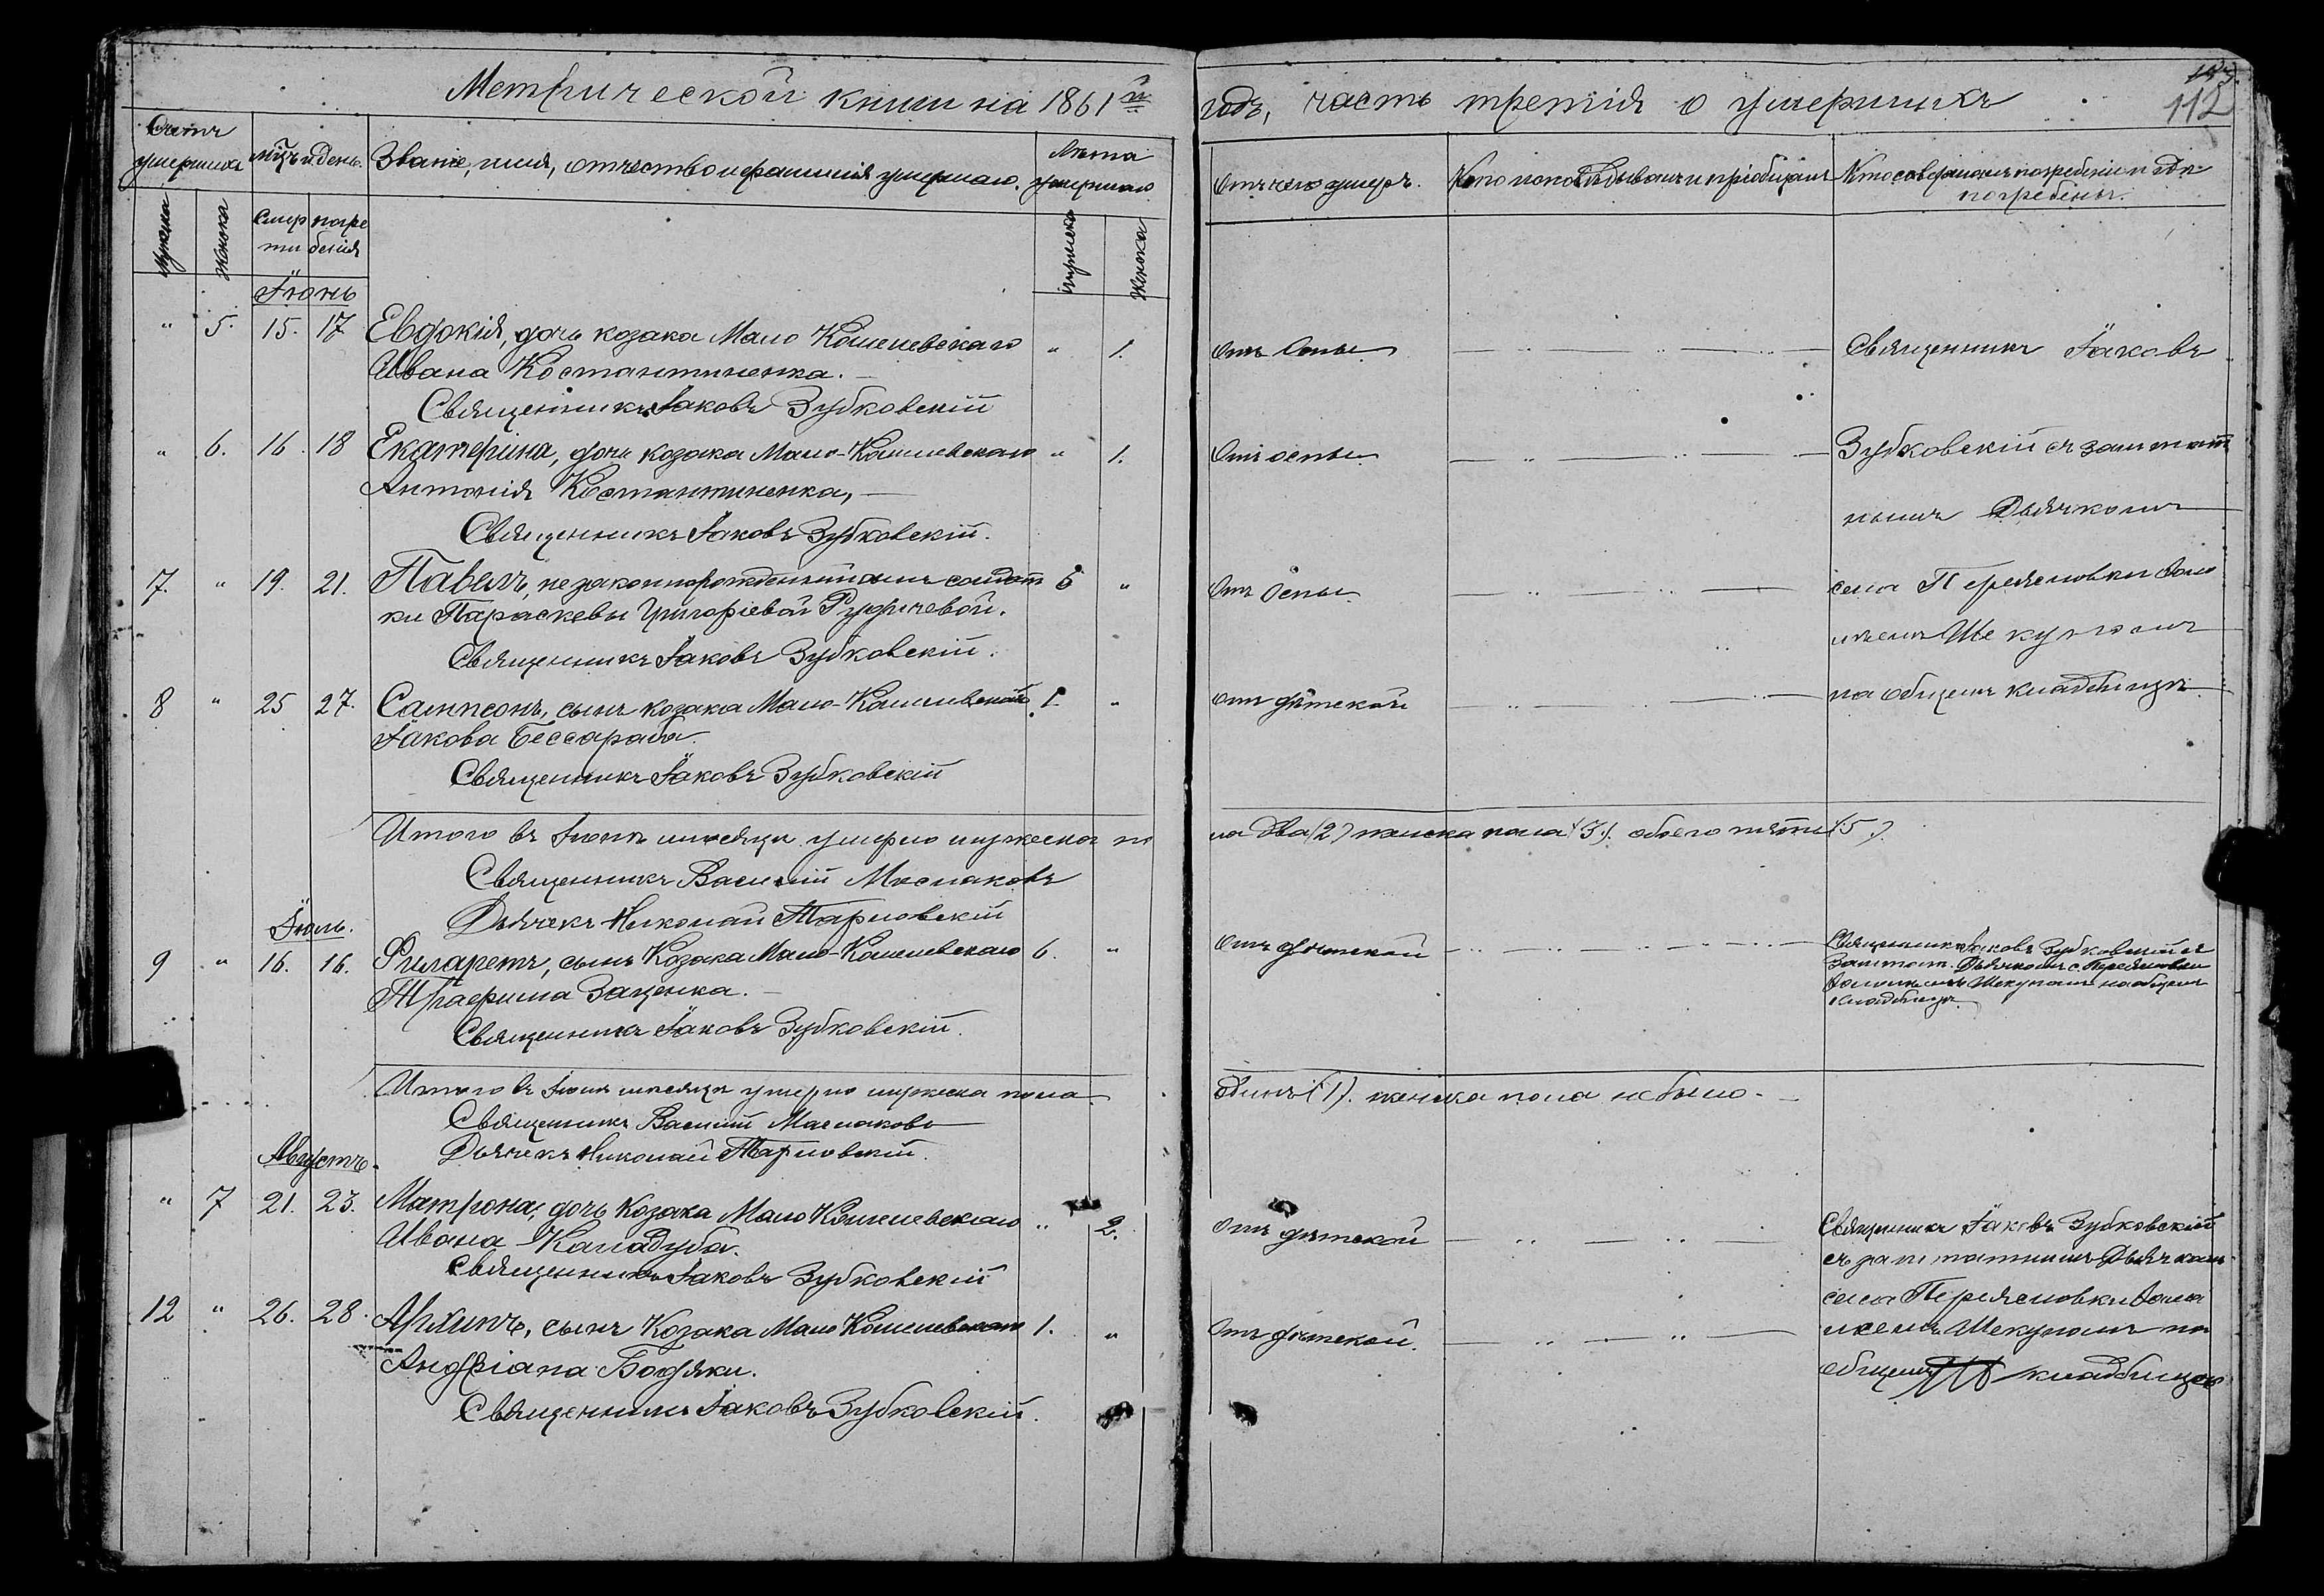 Метрической книги на 1861й годъ, часть третія о умершихъ
112
Счетъ умершихъ
мцъ и день.
Званіе, имя, отчество и фамилія умершаго.
Лѣта умершаго
Отъ чего умеръ.
Кто исповѣдывалъ и пріобщалъ
Кто совершалъ погребеніе и гдѣ погребены.
Мужска
Женска
смерти
погребенія
мужска
женска
Іюнь
" 5. 15. 17 Евдокія, дочь козака Мало Кошелевскаго " 1. Отъ Оспы Священникъ Іаковъ
Ивана Костантиненка.
Священникъ Іаковъ Зубковскій
" 6. 16. 18 Екатерина, дочь козака Мало-Кошелевскаго " 1. Отъ оспы Зубковскій съ заштат
Антонія Костантиненка,
нымъ Дьячкомъ
Священникъ Іаковъ Зубковскій.
7. " 19. 21. Павелъ, незаконнорожденный сынъ солдат 6 " Отъ Оспы села Переясловки Ѳоло
ки Параскевы Григоріевой Рудичевой.
мѣемъ Шекуномъ
Священникъ Іаковъ Зубковскій.
8 " 25 27. Сампсонъ, сынъ козака Мало-Кошелевскаго 1. " Отъ дѣтской на общемъ кладбищѣ.
Іакова Бессараба.
Священникъ Іаковъ Зубковскій
Итого въ Іюнѣ мѣсяцѣ умерло мужеска по
ла два (2) женска пола (3). обоего пять (5.)
Священникъ Василій Маслаковъ
Дьячекъ Николай Тарновскій
Іюль.
9 " 16. 16. Филаретъ, сынъ Козака Мало-Кошелевскаго 6. " Отъ дѣтской Священникъ Іаковъ Зубковскій съ
Заштат. Дьячкомъ с. Переясловки
Трофима Заценка.
Шекуномъ на общем
кладбищѣ
Священникъ Іаковъ Зубковскій.
Итого въ Іюлѣ мѣсяцѣ умерло мужеска пола
одинъ (1). женска пола не было.
Священникъ Василій Маслаковъ
Дьячекъ Николай Тарновскій.
Августъ.
" 7 21. 23. Матрона, дочь Козака Мало Кошелевскаго " 2. Отъ дѣтской Священникъ Іаковъ Зубковскій
Ивана Каладуба.
съ заштатнымъ Дьячком
Священникъ Іаковъ Зубковскій
села Переясловки
12 " 26. 28. Архипъ, сынъ Козака Мало Кошелевскаго 1. " Отъ дѣтской. Шекуномъ на
Андріана Бодяки.
общемъ кладбищѣ
Священникъ Іаковъ Зубковскій.